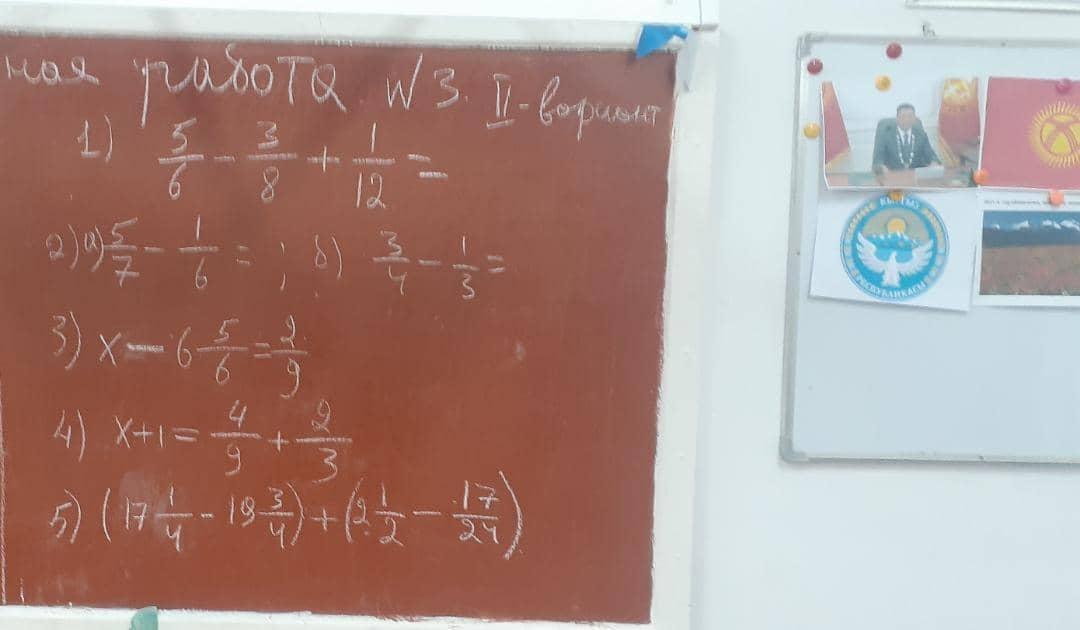 ная работа №3. II-вориант
1) 5/6 - 3/8 + 1/12 =
2) а) 5/7 - 1/6 = ; б) 3/4 - 1/3 =
3) x - 6 5/6 = 2/9
4) x+1 = 4/9 + 2/3
5) (17 1/4 - 13 3/4) + (2 1/2 - 17/24)
КЫРГЫЗ
РЕСПУБЛИКАСЫ